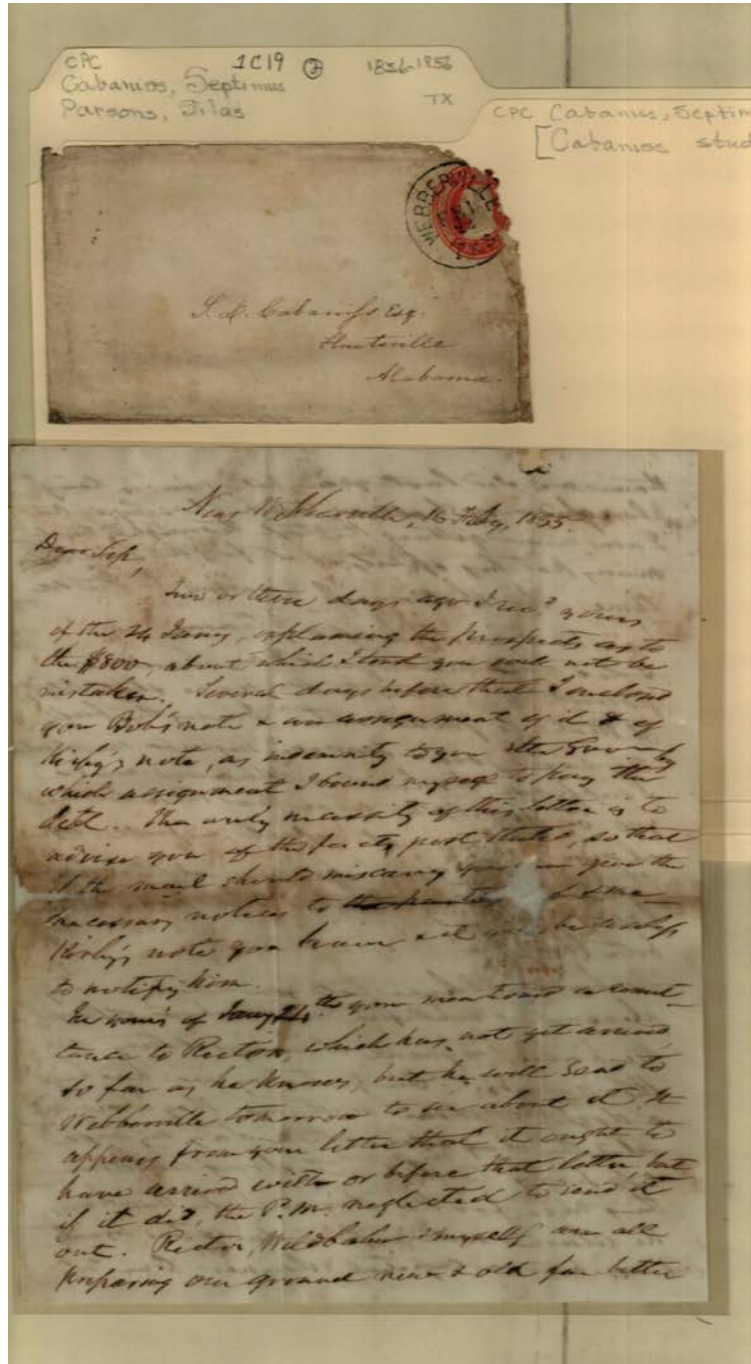 CPC 1C19 2 1856-1856
Cabaniss, Septimus
Parsons, Silas TX
CPC Cabaniss, Septim
[Cabaniss stud
WEBBERVILLE
S. D. Cabaniss Esq.
Huntsville
Alabama.
Near Webberville, 16 Feby, 1855.
Dear Sep,
Two or three days ago I recd yours
of the 24 Jany, explaining the prospects as to
the $800, about which I trust you will not be
mistaken. Several days before that I enclosed
you Bob's note & an assignment of it & of
Kirby's note, as indemnity to you by
which assignment I bound myself to pay the
debt. The only necessity of this letter is to
advise you of the facts just stated, so that
if the mail should miscarry you can give the
necessary notices to
Kirby's note you have & it will be useless
to notify him.
In yours of Jany 24th you mentioned a remit-
tance to Rector, which has not yet arrived
so far as he knows, but he will send to
Webberville tomorrow to see about it. It
appears from your letter that it ought to
have arrived with or before that letter, but
if it did, the P.M. neglected to send it
out. Rector, & myself are all
preparing our ground new & old far better